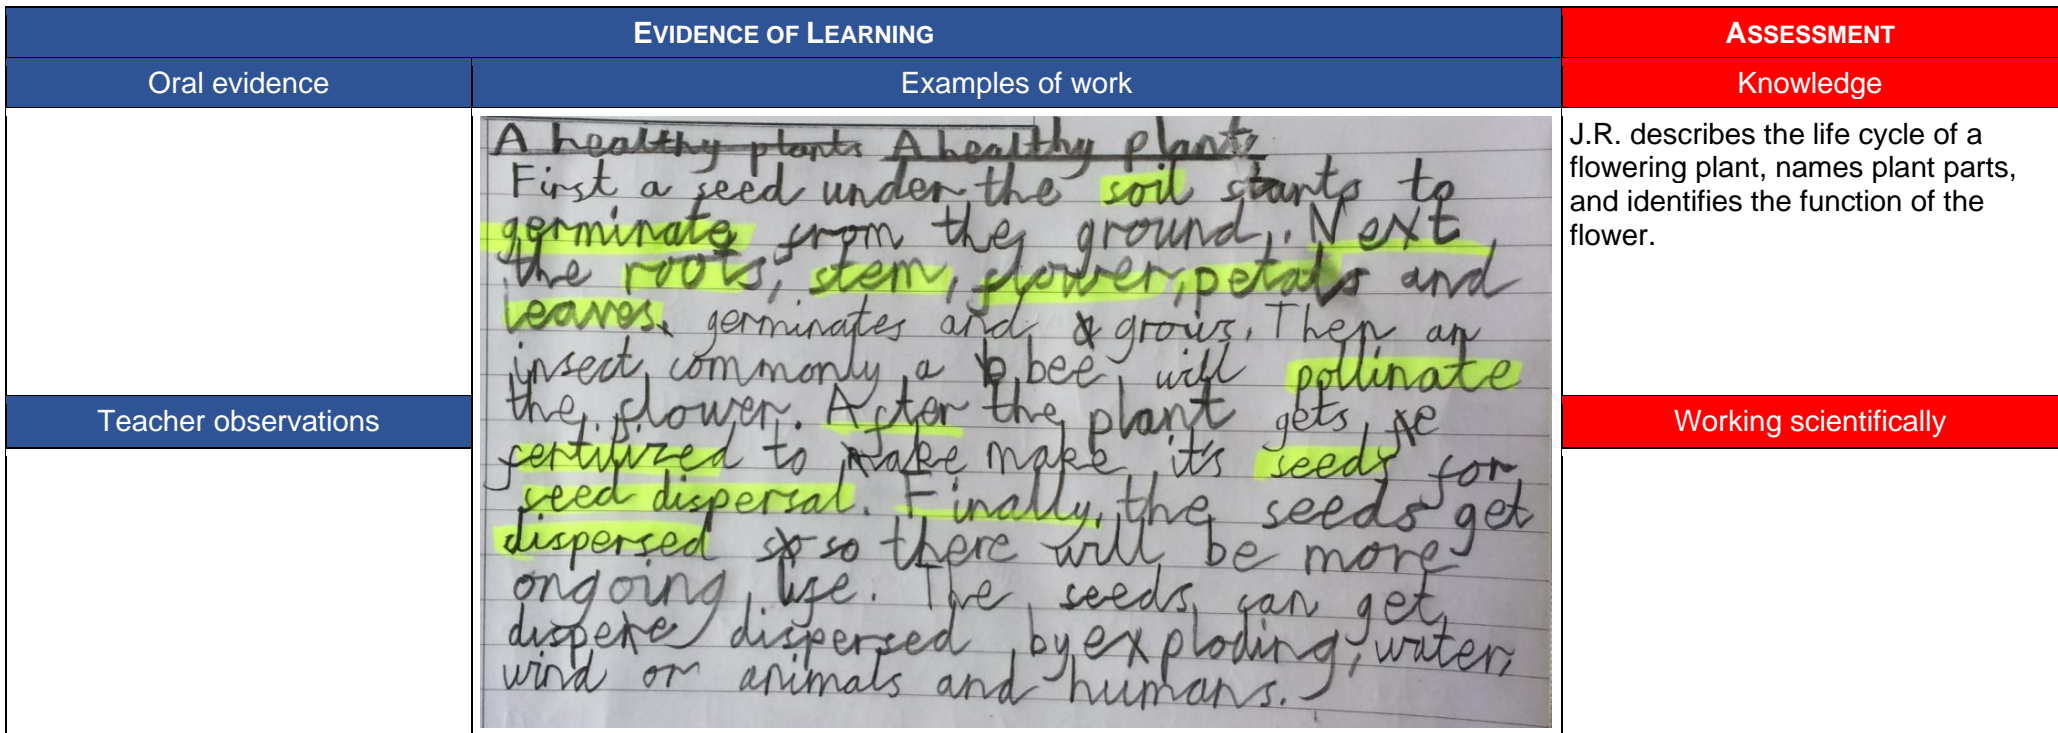 EVIDENCE OF LEARNING
ASSESSMENT
Oral evidence
Examples of work
Knowledge
A healthy plants A healthy plant
First a seed under the soil starts to
germinate from the ground. Next
the roots, stem, flower, petals and
leaves. germinates and grows. Then an
insect, commonly a b bee, will pollinate
the flower. After the plant gets fe
fertilized to make make it's seeds for
seed dispersal. Finally, the seeds get
dispersed so so there will be more
ongoing life. The seeds can get
dispere dispersed by exploding, water,
wind or animals and humans.
J.R. describes the life cycle of a
flowering plant, names plant parts,
and identifies the function of the
flower.
Teacher observations
Working scientifically